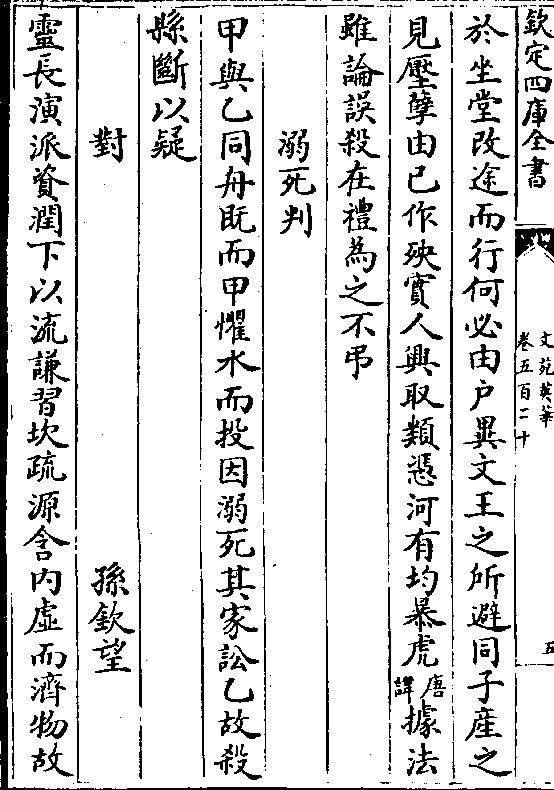 欽定四庫全書
文苑英華
卷五百二十
五
於坐堂改途而行何必由户異文王之所避同子産之
見壓孽由已作殃實人興取類慿河有均暴虎唐諱據法
雖論誤殺在禮為之不弔
溺死判
甲與乙同舟既而甲懼水而投因溺死其家訟乙故殺
縣斷以疑
對
孫欽望
靈長演派資潤下以流謙習坎疏源含内虛而濟物故